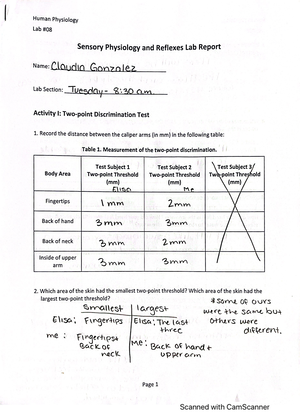 Human Physiology
Lab #08
Sensory Physiology and Reflexes Lab Report
Name: Claudia Gonzalez
Lab Section: Tuesday - 8:30 a.m.
Activity I: Two-point Discrimination Test
1. Record the distance between the caliper arms (in mm) in the following table:
Table 1. Measurement of the two-point discrimination.
Body Area | Test Subject 1 Two-point Threshold (mm) Elisa | Test Subject 2 Two-point Threshold (mm) Me | Test Subject 3 Two-point Threshold (mm)
Fingertips | 1 mm | 2mm
Back of hand | 3 mm | 3mm
Back of neck | 3mm | 2 mm
Inside of upper arm | 3mm | 3 mm
2. Which area of the skin had the smallest two-point threshold? Which area of the skin had the
largest two-point threshold?
Smallest | largest
Elisa: Fingertips | Elisa: The last three
me: Fingertips + Back of neck | Me: Back of hand + upper arm
* some of ours
were the same but
others were
different.
Page 1
Scanned with CamScanner